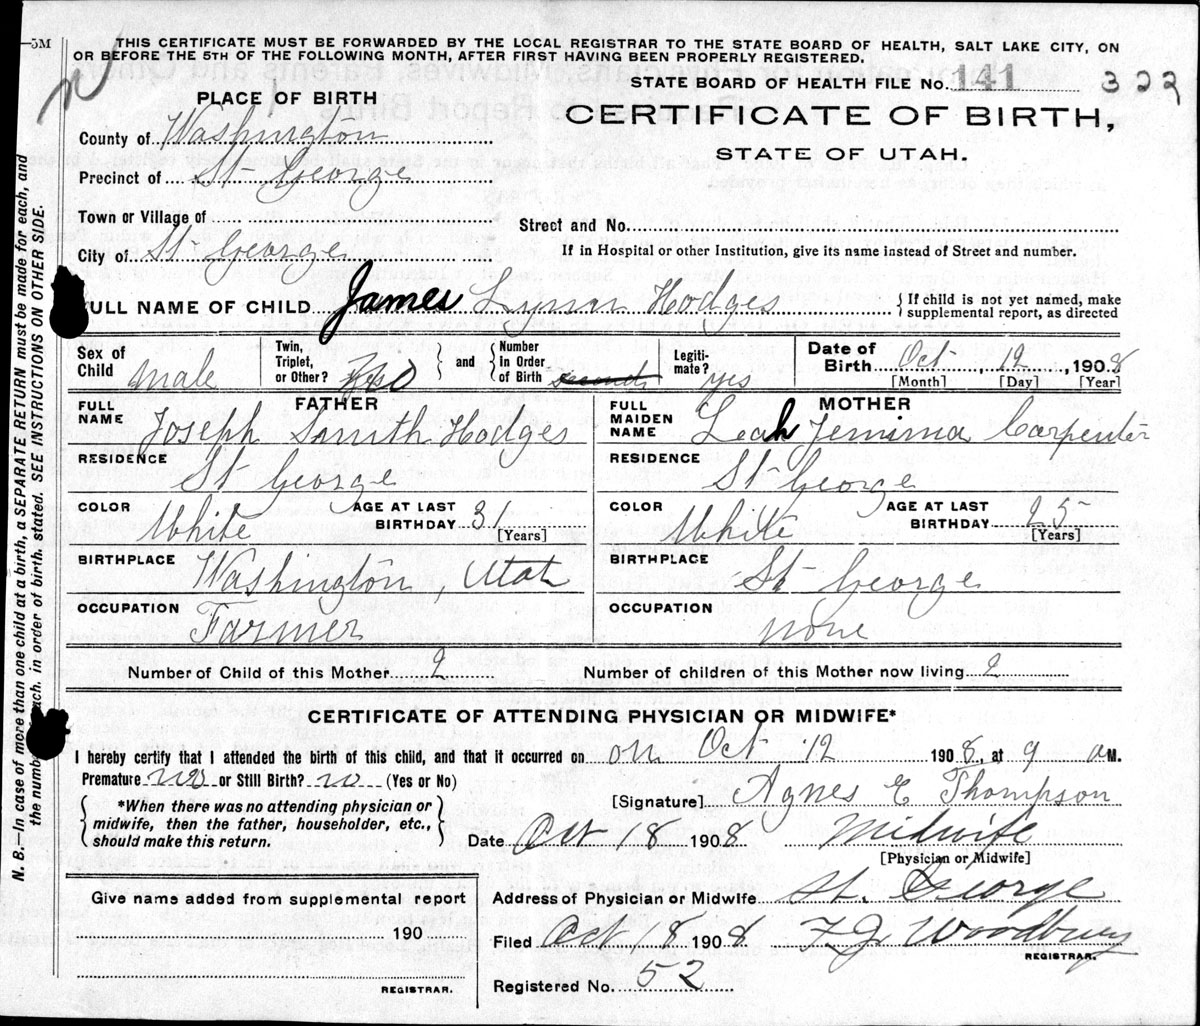 5M
THIS CERTIFICATE MUST BE FORWARDED BY THE LOCAL REGISTRAR TO THE STATE BOARD OF HEALTH, SALT LAKE CITY, ON
OR BEFORE THE 5TH OF THE FOLLOWING MONTH, AFTER FIRST HAVING BEEN PROPERLY REGISTERED.
STATE BOARD OF HEALTH FILE No. 141 322
PLACE OF BIRTH
CERTIFICATE OF BIRTH,
STATE OF UTAH.
County of Washington
Precinct of St George
Town or Village of
Street and No.
City of St George
If in Hospital or other Institution, give its name instead of Street and number.
FULL NAME OF CHILD James Lynn Hodges { If child is not yet named, make
supplemental report, as directed
Sex of Child male
Twin, Triplet, or Other? and Number in Order of Birth second
Legitimate? yes
Date of Birth Oct 12, 1908
[Month] [Day] [Year]
FATHER
FULL NAME Joseph Smith Hodges
RESIDENCE St George
COLOR White AGE AT LAST BIRTHDAY 31 [Years]
BIRTHPLACE Washington, Utah
OCCUPATION Farmer
MOTHER
FULL MAIDEN NAME Leah Jemima Carpenter
RESIDENCE St George
COLOR White AGE AT LAST BIRTHDAY 25 [Years]
BIRTHPLACE St George
OCCUPATION none
Number of Child of this Mother 2 Number of children of this Mother now living 2
CERTIFICATE OF ATTENDING PHYSICIAN OR MIDWIFE*
I hereby certify that I attended the birth of this child, and that it occurred on on Oct 12 1908, at 9 a M.
Premature or Still Birth? no (Yes or No)
{ *When there was no attending physician or
midwife, then the father, householder, etc.,
should make this return. }
[Signature] Agnes E Thompson
Date Oct 18 1908 Midwife
[Physician or Midwife]
Give name added from supplemental report
190
REGISTRAR.
Address of Physician or Midwife St. George
Filed Oct 18 1908 F J Woodbury
REGISTRAR.
Registered No. 52
N. B.—In case of more than one child at a birth, a SEPARATE RETURN must be made for each, and
the number each, in order of birth, stated. SEE INSTRUCTIONS ON OTHER SIDE.